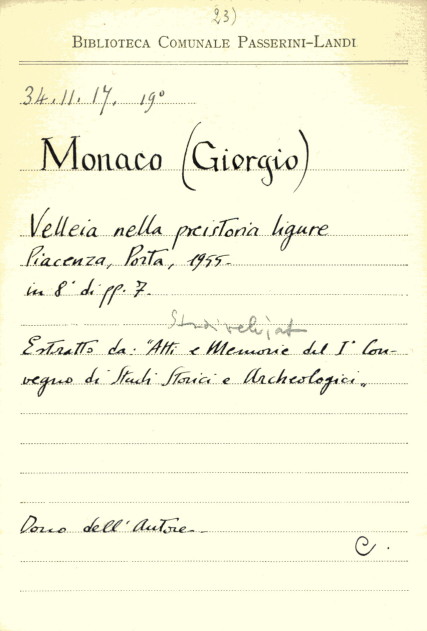 23)
BIBLIOTECA COMUNALE PASSERINI-LANDI
34.11.17. 19°
Monaco (Giorgio)
Velleia nella preistoria ligure
Piacenza, Porta, 1955.
in 8° di pp. 7.
Studi velejat
Estratto da: "Atti e Memorie del I° Con-
vegno di Studi Storici e Archeologici„
Dono dell'Autore
C.